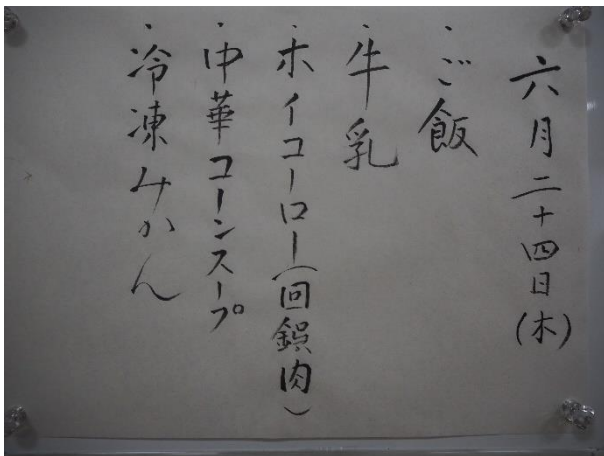 六月二十四日(木)
・ご飯
・牛乳
・ホイコーロー(回鍋肉)
・中華コーンスープ
・冷凍みかん